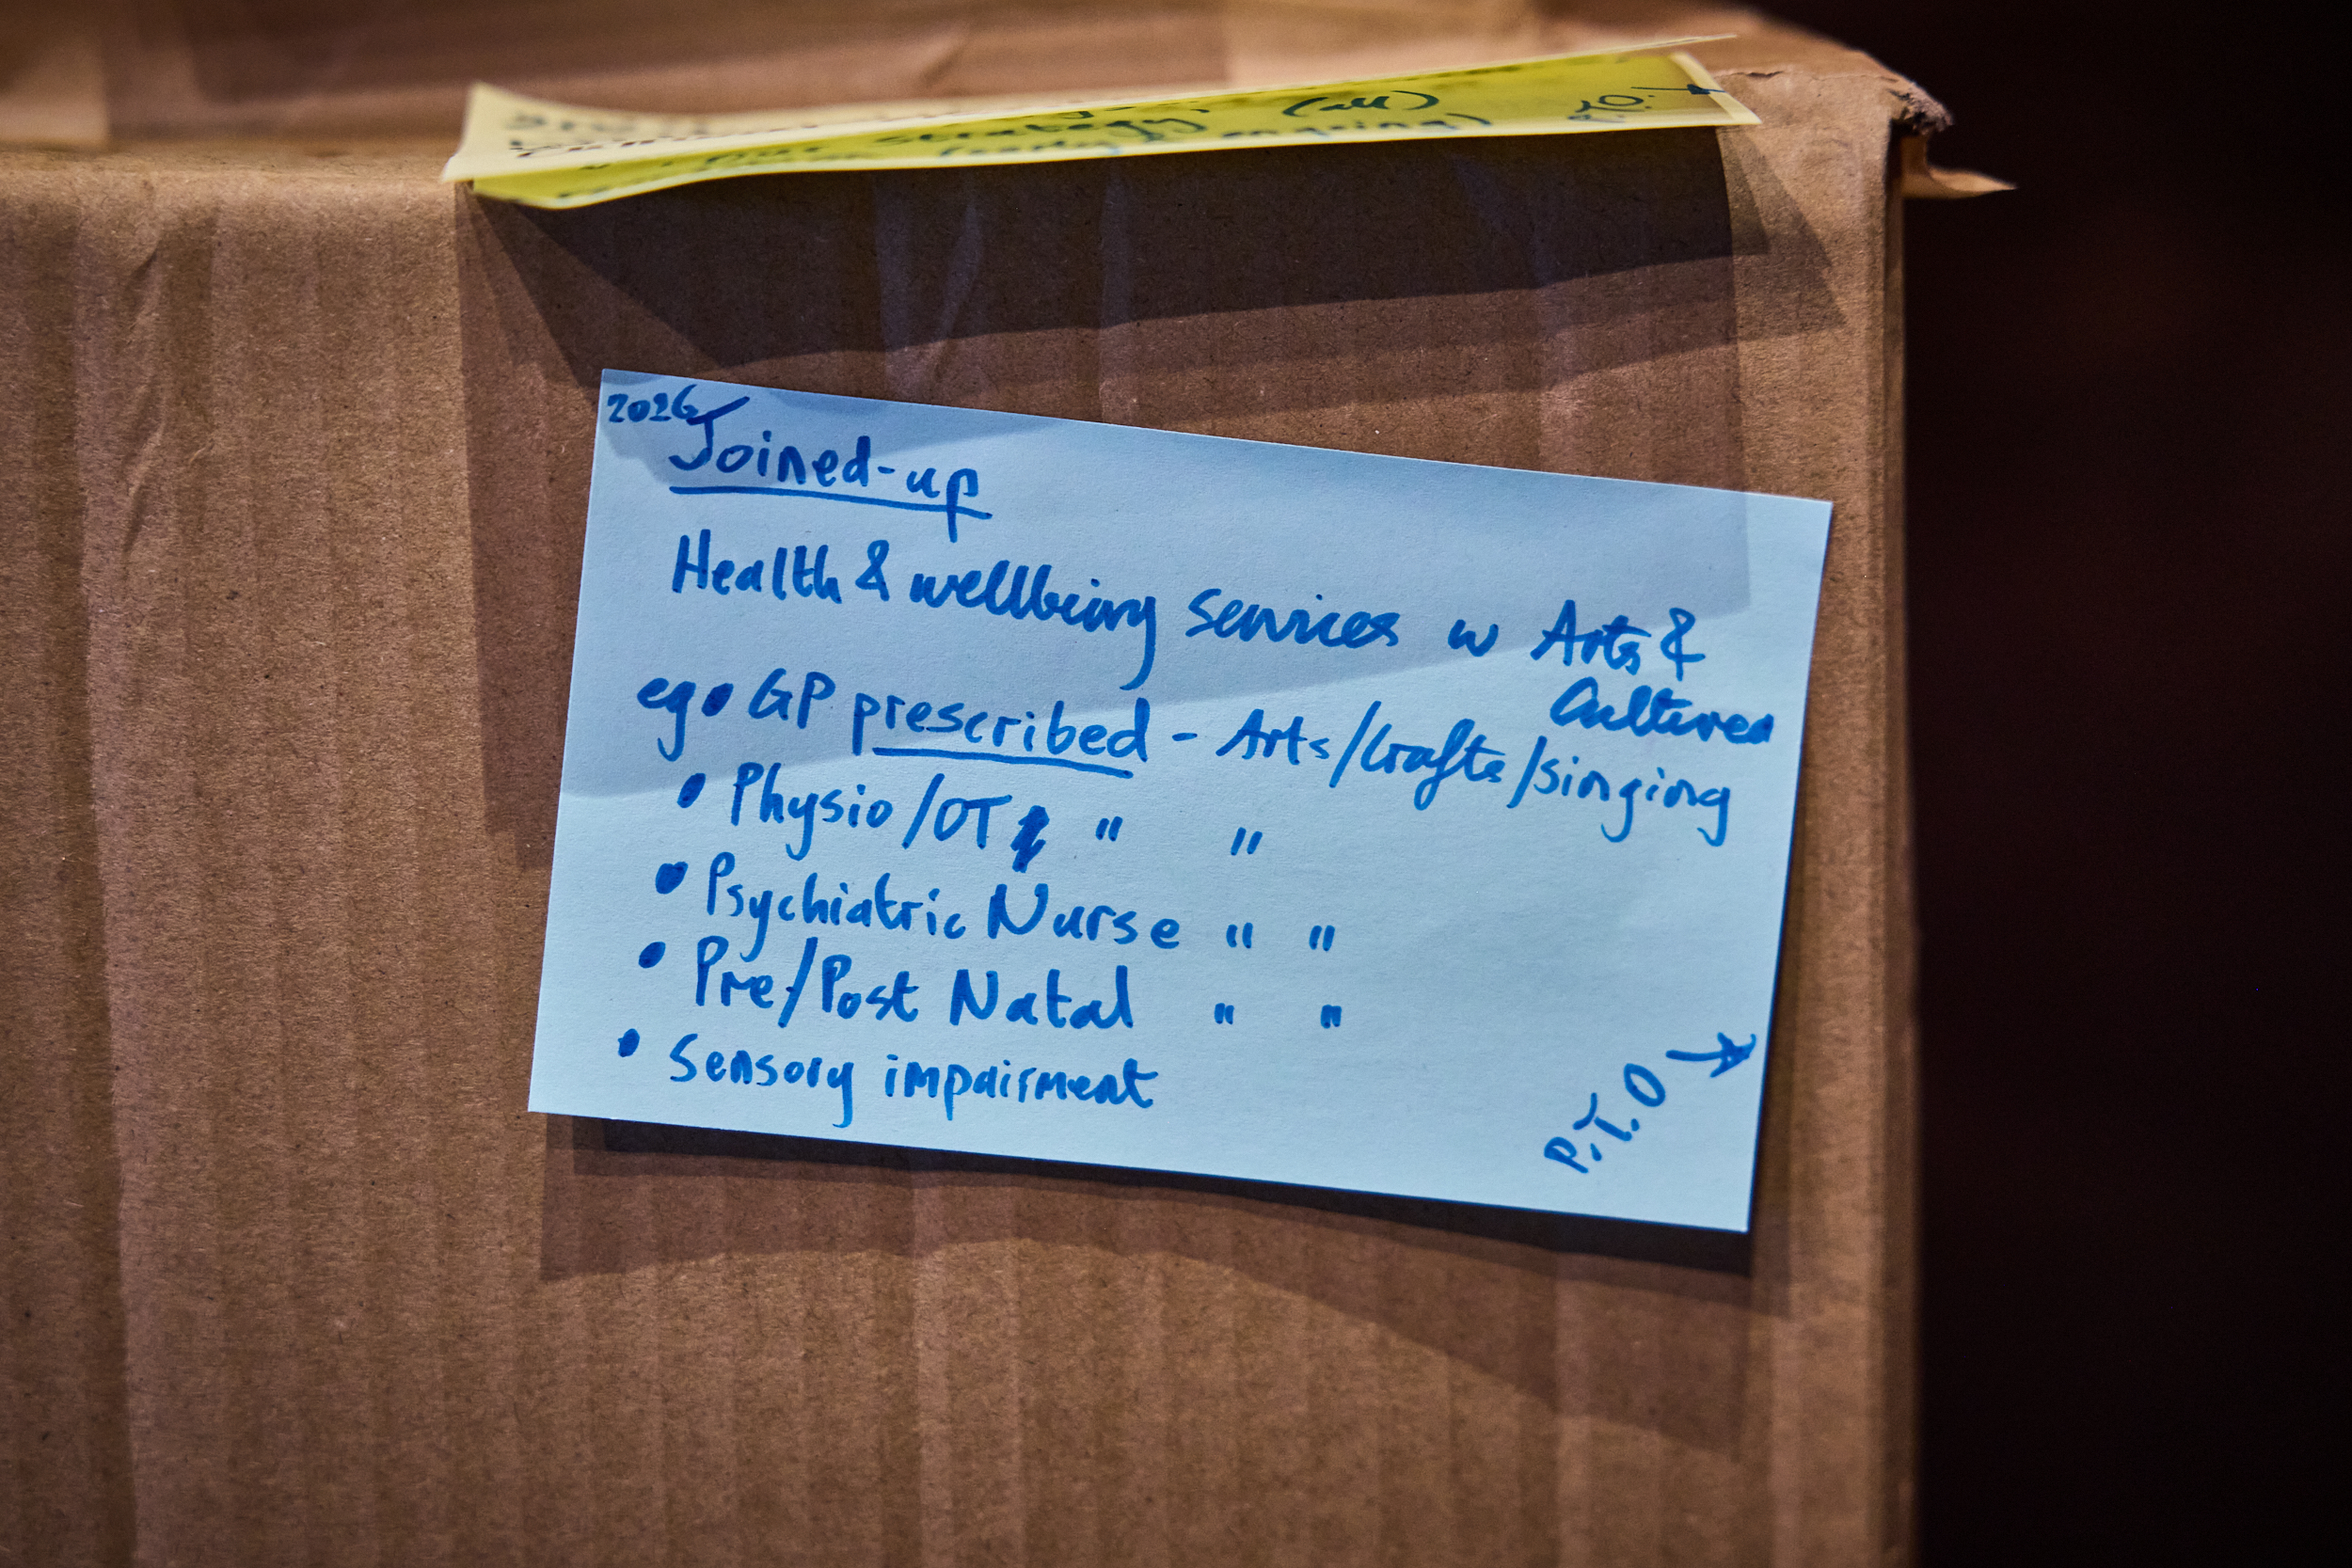 strategy, (all)
ongoing) P.T.O.
2026
Joined-up
Health & wellbeing services w Arts &
Cultures
eg • GP prescribed - Arts/Crafts/singing
• Physio/OT " "
• Psychiatric Nurse " "
• Pre/Post Natal " "
• Sensory impairment
P.T.O →